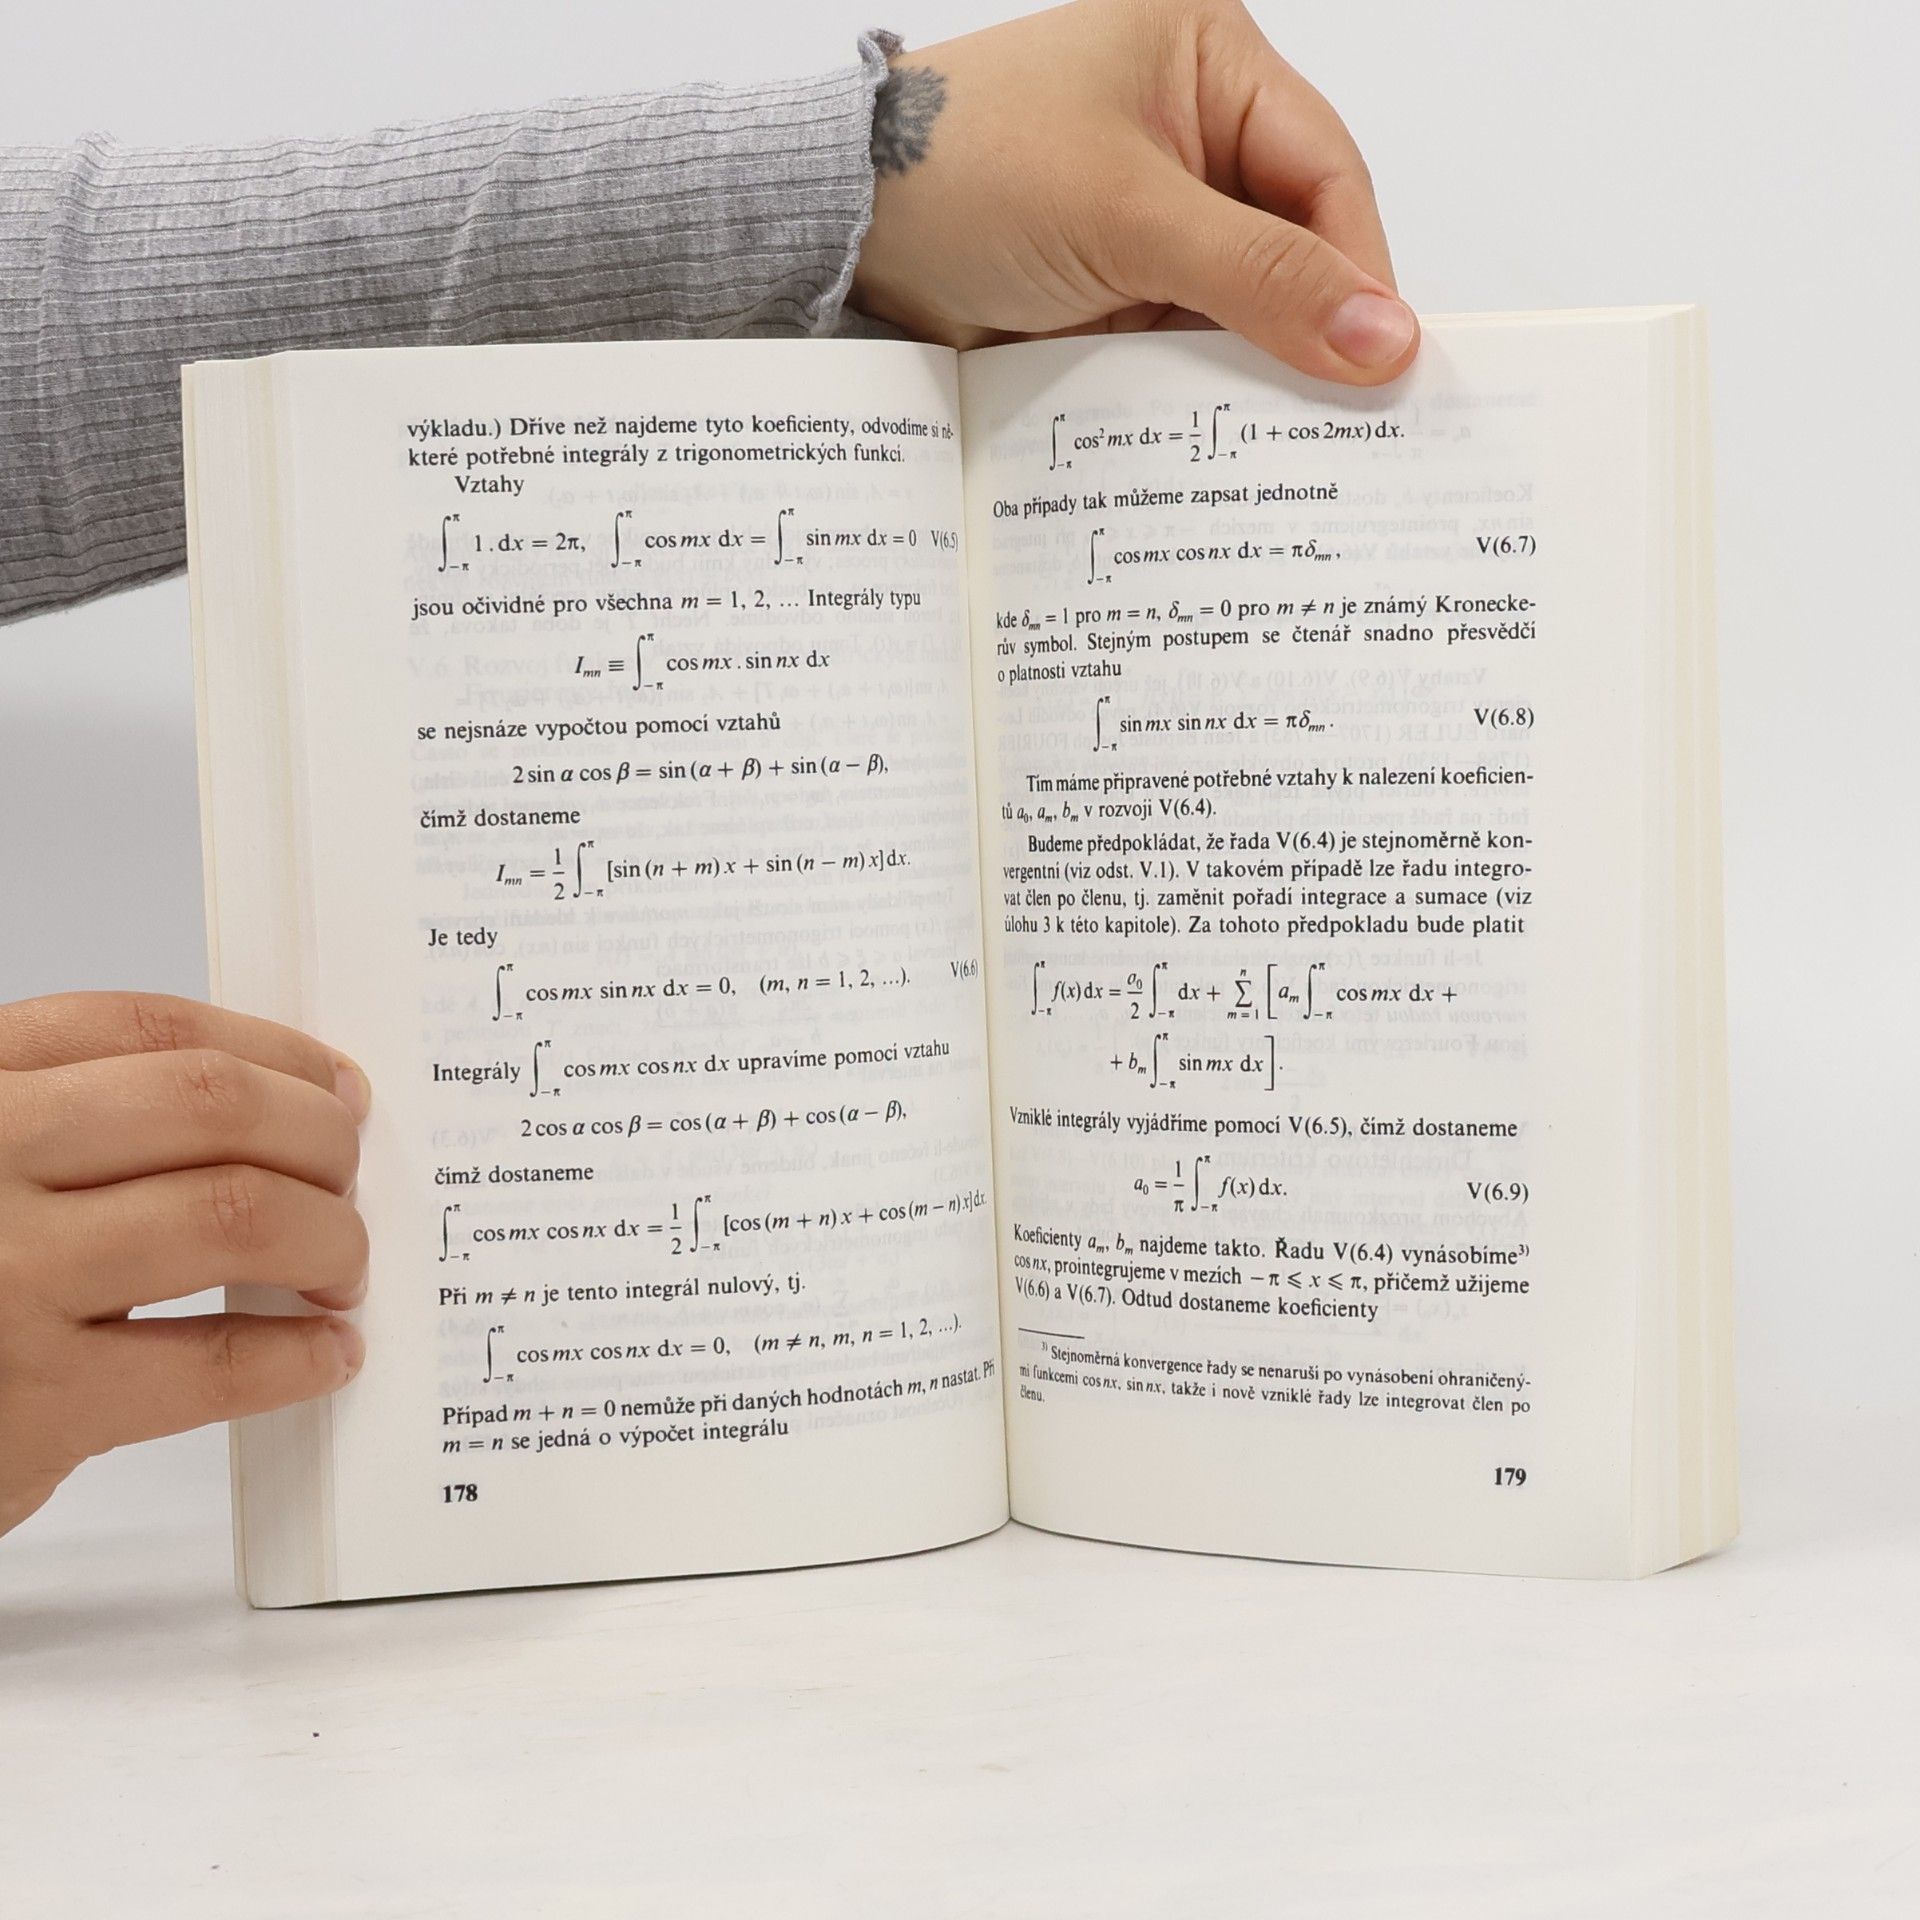 výkladu.) Dříve než najdeme tyto koeficienty, odvodíme si ně-
které potřebné integrály z trigonometrických funkcí.
Vztahy
∫_{−π}^{π} 1 . dx = 2π, ∫_{−π}^{π} cos mx dx = ∫_{−π}^{π} sin mx dx = 0 V(6.5)
jsou očividné pro všechna m = 1, 2, … Integrály typu
I_{mn} ≡ ∫_{−π}^{π} cos mx . sin nx dx
se nejsnáze vypočtou pomocí vztahů
2 sin α cos β = sin (α + β) + sin (α − β),
čímž dostaneme
I_{mn} = 1/2 ∫_{−π}^{π} [sin (n + m) x + sin (n − m) x] dx.
Je tedy
∫_{−π}^{π} cos mx sin nx dx = 0, (m, n = 1, 2, …). V(6.6)
Integrály ∫_{−π}^{π} cos mx cos nx dx upravíme pomocí vztahu
2 cos α cos β = cos (α + β) + cos (α − β),
čímž dostaneme
∫_{−π}^{π} cos mx cos nx dx = 1/2 ∫_{−π}^{π} [cos (m + n) x + cos (m − n) x] dx.
Při m ≠ n je tento integrál nulový, tj.
∫_{−π}^{π} cos mx cos nx dx = 0, (m ≠ n, m, n = 1, 2, …).
Případ m + n = 0 nemůže při daných hodnotách m, n nastat. Při
m = n se jedná o výpočet integrálu
178
∫_{−π}^{π} cos² mx dx = 1/2 ∫_{−π}^{π} (1 + cos 2mx) dx.
Oba případy tak můžeme zapsat jednotně
∫_{−π}^{π} cos mx cos nx dx = πδ_{mn}, V(6.7)
kde δ_{mn} = 1 pro m = n, δ_{mn} = 0 pro m ≠ n je známý Kronecke-
rův symbol. Stejným postupem se čtenář snadno přesvědčí
o platnosti vztahu
∫_{−π}^{π} sin mx sin nx dx = πδ_{mn}. V(6.8)
Tím máme připravené potřebné vztahy k nalezení koeficien-
tů a₀, a_m, b_m v rozvoji V(6.4).
Budeme předpokládat, že řada V(6.4) je stejnoměrně kon-
vergentní (viz odst. V.1). V takovém případě lze řadu integro-
vat člen po členu, tj. zaměnit pořadí integrace a sumace (viz
úlohu 3 k této kapitole). Za tohoto předpokladu bude platit
∫_{−π}^{π} f(x) dx = a₀/2 ∫_{−π}^{π} dx + ∑_{m=1}^{n} [a_m ∫_{−π}^{π} cos mx dx +
+ b_m ∫_{−π}^{π} sin mx dx].
Vzniklé integrály vyjádříme pomocí V(6.5), čímž dostaneme
a₀ = 1/π ∫_{−π}^{π} f(x) dx. V(6.9)
Koeficienty a_m, b_m najdeme takto. Řadu V(6.4) vynásobíme³⁾
cos nx, prointegrujeme v mezích −π ⩽ x ⩽ π, přičemž užijeme
V(6.6) a V(6.7). Odtud dostaneme koeficienty
³⁾ Stejnoměrná konvergence řady se nenaruší po vynásobení ohraničený-
mi funkcemi cos nx, sin nx, takže i nově vzniklé řady lze integrovat člen po
členu.
179